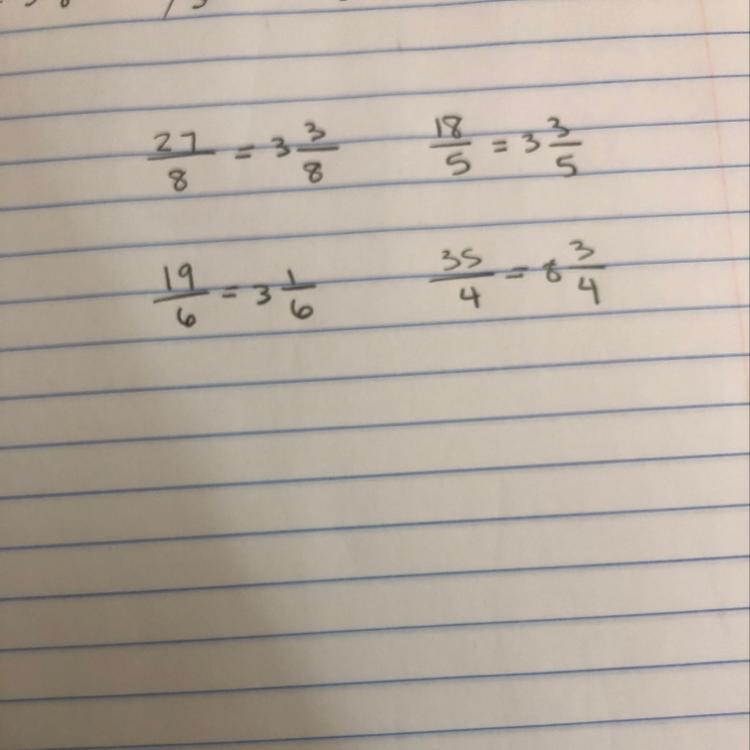 27/8 = 3 3/8    18/5 = 3 3/5
19/6 = 3 1/6    35/4 = 8 3/4